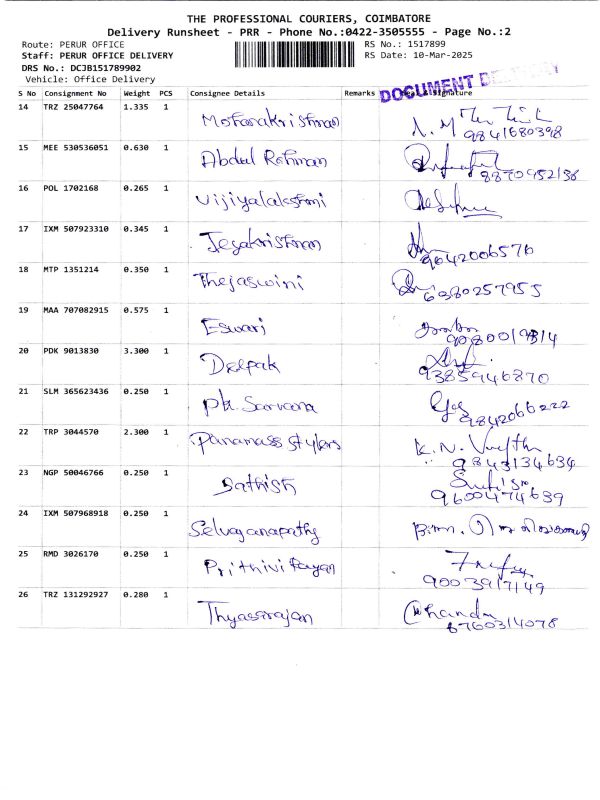 THE PROFESSIONAL COURIERS, COIMBATORE
Delivery Runsheet - PRR - Phone No.:0422-3505555 - Page No.:2
Route: PERUR OFFICE RS No.: 1517899
Staff: PERUR OFFICE DELIVERY RS Date: 10-Mar-2025
DRS No.: DCJB151789902
Vehicle: Office Delivery
DOCUMENT DELIVERY
S No Consignment No Weight PCS Consignee Details Remarks Signature
14 TRZ 25047764 1.335 1 Mohanakrishnan
9841680398
15 MEE 530536051 0.630 1 Abdul Rahman
8870952136
16 POL 1702168 0.265 1 Vijiyalakshmi
17 IXM 507923310 0.345 1 Jegakrishnan
9642006576
18 MTP 1351214 0.350 1 Thejaswini
6380257955
19 MAA 707082915 0.575 1 Eswari
20 PDK 9013830 3.300 1 Deepak
9385946870
21 SLM 365623436 0.250 1 PK. Sarvana
9842066222
22 TRP 3044570 2.300 1 Panamass stylers
K.N.
9843134634
23 NGP 50046766 0.250 1 Sathish
9600474639
24 IXM 507968918 0.250 1 Selvaganapathy
25 RMD 3026170 0.250 1 Prithivirayan
9003917149
26 TRZ 131292927 0.280 1 Thyagarajan
Chandu
8760314078